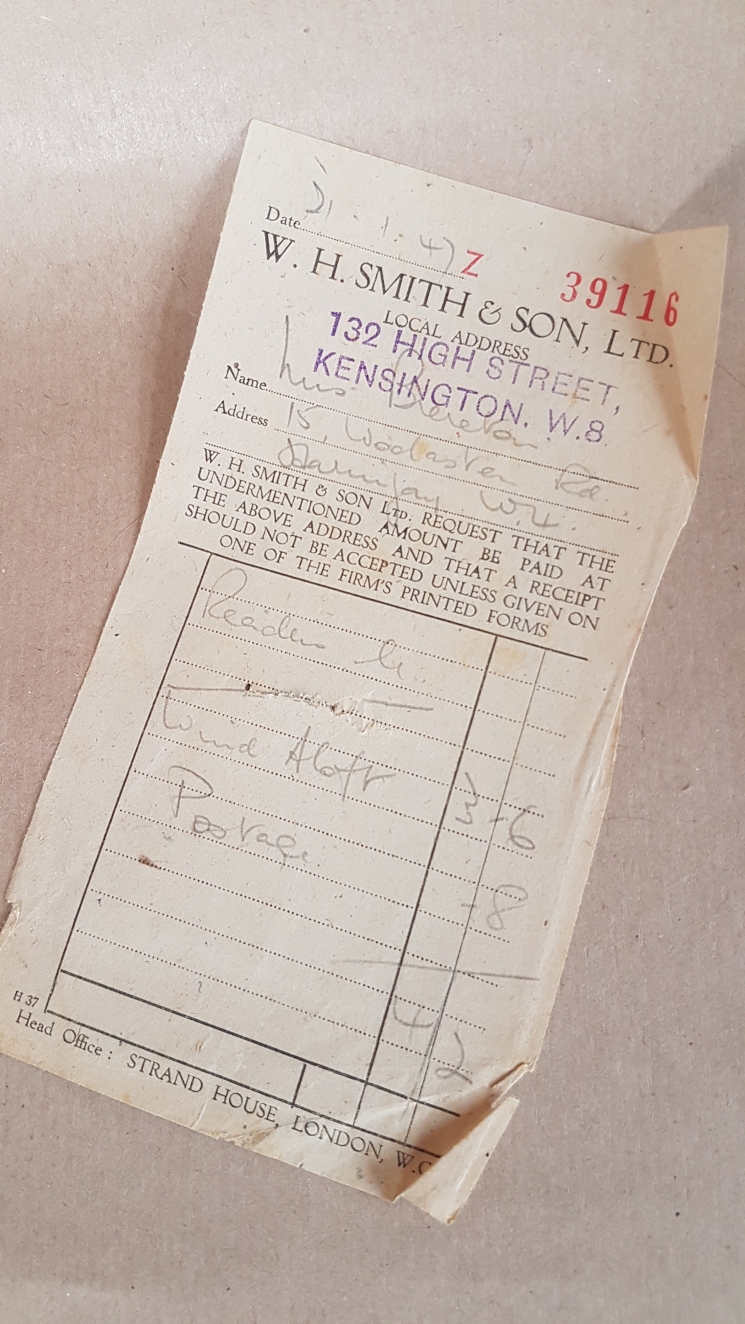 Date 31.1.47
Z 39116
W. H. SMITH & SON, LTD.
LOCAL ADDRESS
132 HIGH STREET,
KENSINGTON, W.8.
Name
Address 15, Rd.
W.14.
W. H. SMITH & SON LTD. REQUEST THAT THE
UNDERMENTIONED AMOUNT BE PAID AT
THE ABOVE ADDRESS AND THAT A RECEIPT
SHOULD NOT BE ACCEPTED UNLESS GIVEN ON
ONE OF THE FIRM'S PRINTED FORMS
Readers
Wind Aloft 3-6
Postage -8
4 2
H 37
Head Office: STRAND HOUSE, LONDON, W.C.